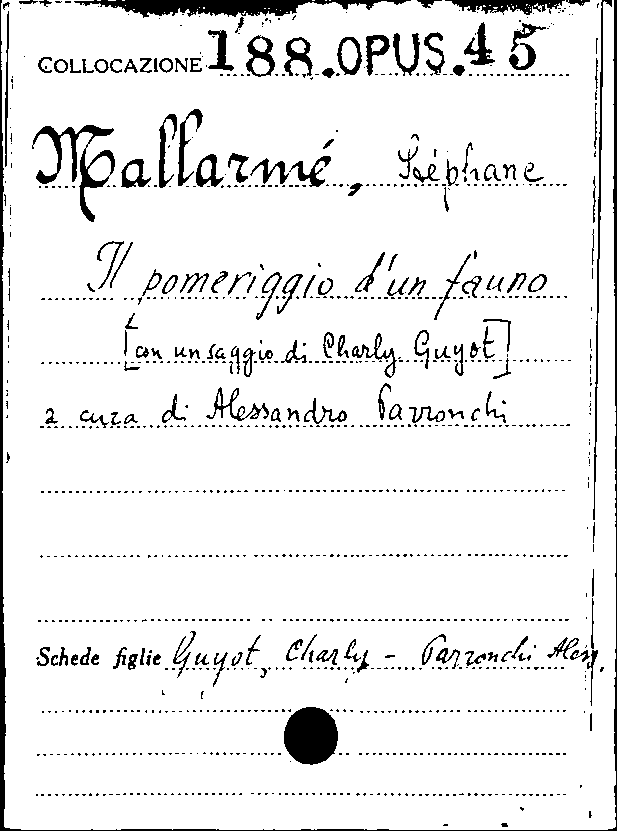 COLLOCAZIONE 188.OPUS.45
Mallarmé, Stéphane
Il pomeriggio d'un fauno
[con un saggio di Charly Guyot]
a cura di Alessandro Parronchi
Schede figlie Guyot, Charly - Parronchi Aless.